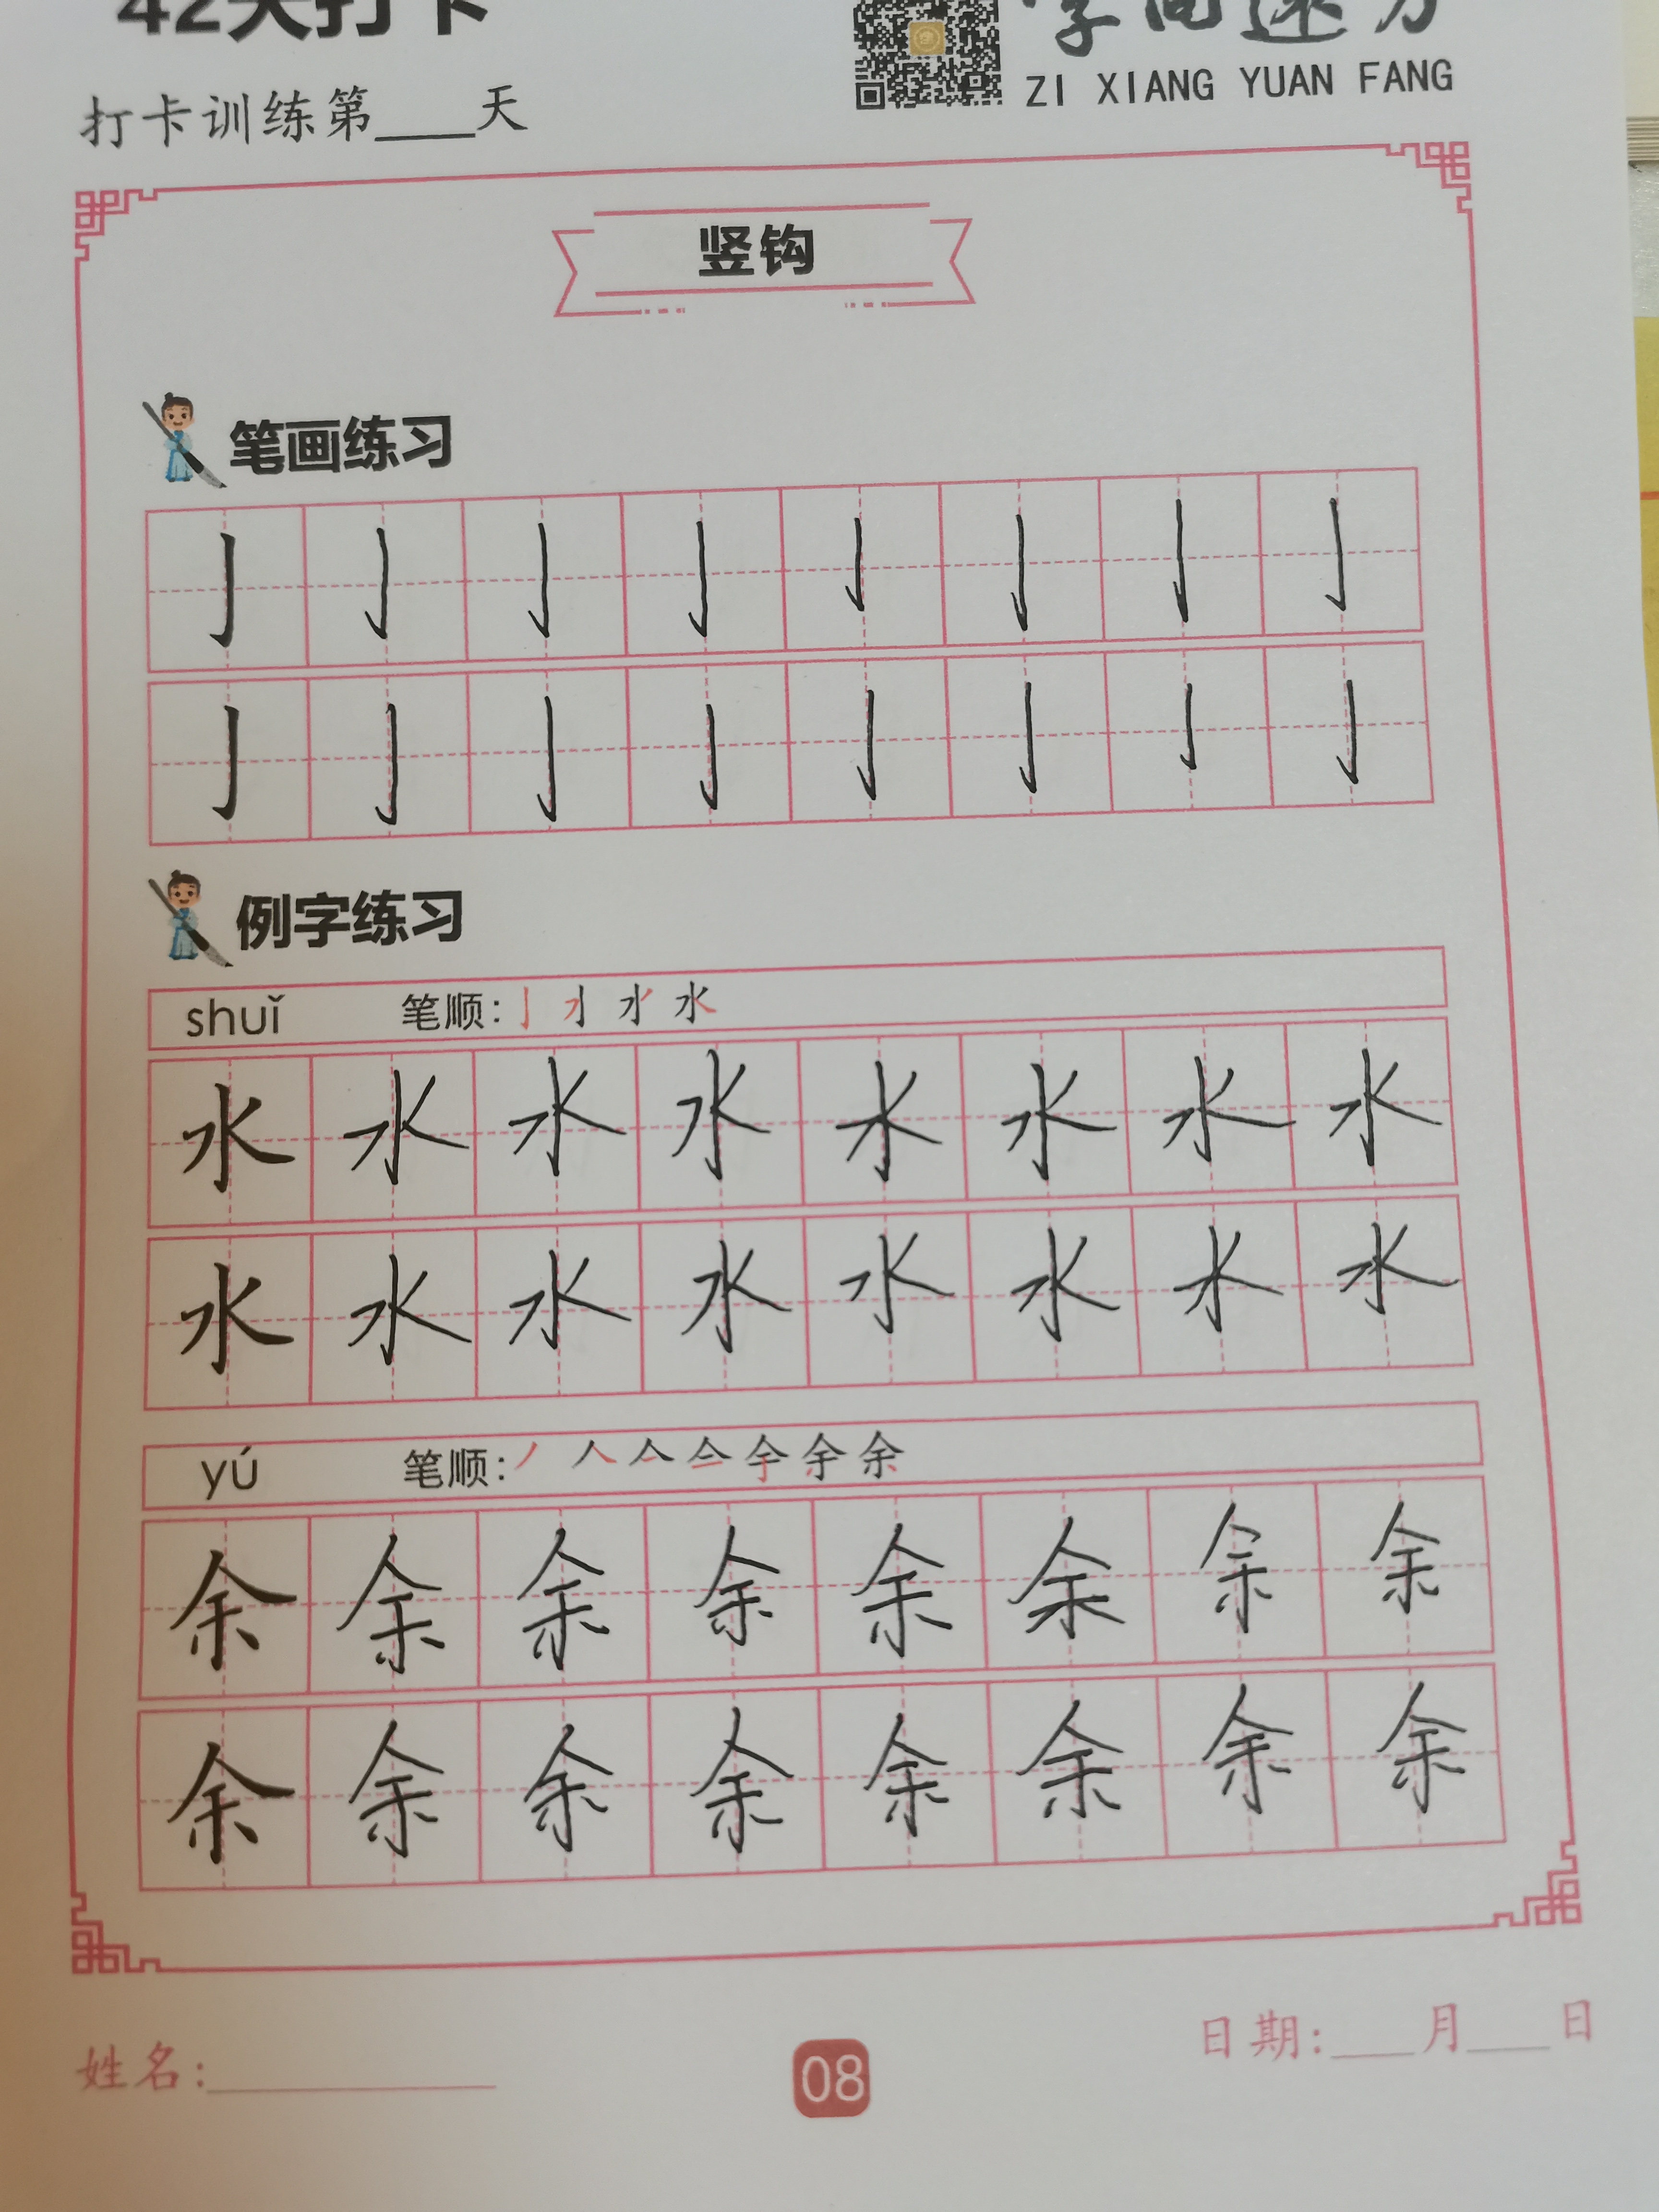 42天打卡
ZI XIANG YUAN FANG
打卡训练第____天
竖钩
笔画练习
亅 亅 亅 亅 亅 亅 亅 亅
亅 亅 亅 亅 亅 亅 亅 亅
例字练习
shuǐ 笔顺: 水
水 水 水 水 水 水 水 水
水 水 水 水 水 水 水 水
yú 笔顺: 余
余 余 余 余 余 余 余 余
余 余 余 余 余 余 余 余
姓名:____________ 08 日期:____月____日